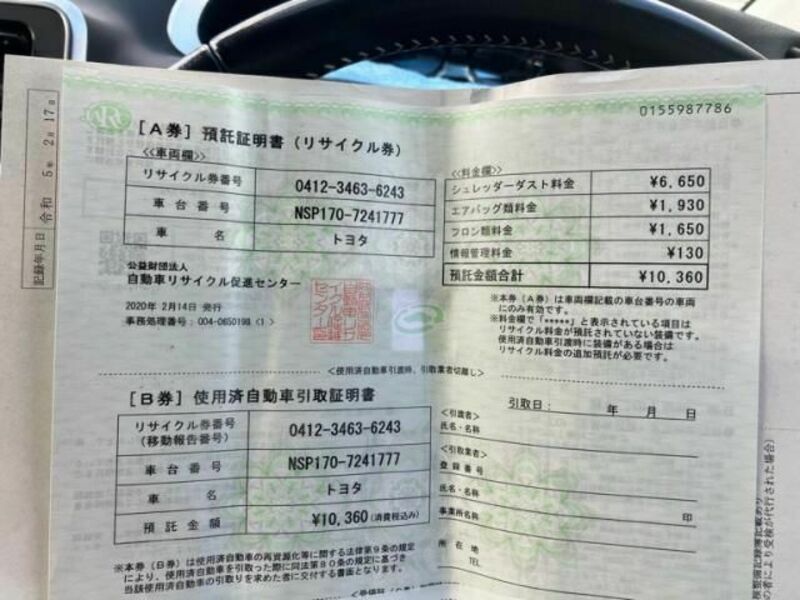 0155987786
[A券] 預託証明書 (リサイクル券)
<<車両欄>>
リサイクル券番号 0412-3463-6243
車台番号 NSP170-7241777
車名 トヨタ
公益財団法人
自動車リサイクル促進センター
2020年 2月14日 発行
事務処理番号: 004-0650198 <1>
<<料金欄>>
シュレッダーダスト料金 ¥6,650
エアバッグ類料金 ¥1,930
フロン類料金 ¥1,650
情報管理料金 ¥130
預託金額合計 ¥10,360
※本券 (A券) は車両欄記載の車台番号の車両
にのみ有効です。
※料金欄で「*****」と表示されている項目は
リサイクル料金が預託されていない装備です。
使用済自動車引渡時に装備がある場合は
リサイクル料金の追加預託が必要です。
<使用済自動車引渡時、引取業者切離し>
[B券] 使用済自動車引取証明書
リサイクル券番号
(移動報告番号) 0412-3463-6243
車台番号 NSP170-7241777
車名 トヨタ
預託金額 ¥10,360 (消費税込み)
※本券 (B券) は使用済自動車の再資源化等に関する法律第9条の規定
により、使用済自動車を引取った際に同法第80条の規定に基づき
当該使用済自動車の引取りを求めた者に交付する書面となります。
引取日: 年 月 日
<引渡者>
氏名・名称
<引取業者>
登録番号
氏名・名称
事業所名称 印
所在地
TEL
記録年月日 令和 5年 2月 17日
の者により受検が代行された場合)